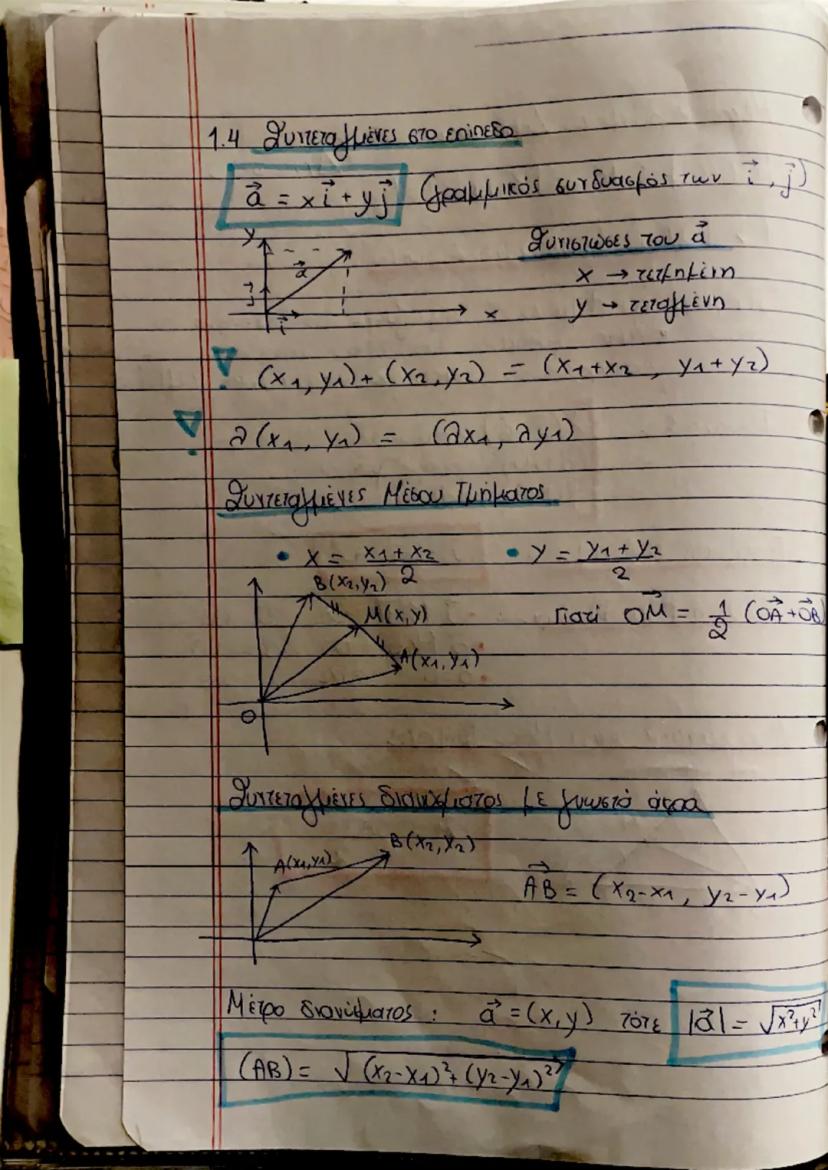 1.4 Συντεταγμένες στο επίπεδο
a⃗ = x i⃗ + y j⃗ (γραμμικός συνδυασμός των i⃗, j⃗)
y
a⃗
j⃗
i⃗
x
Συνιστώσες του a⃗
x → τετμημένη
y → τεταγμένη
! (x₁, y₁) + (x₂, y₂) = (x₁+x₂, y₁+y₂)
! λ(x₁, y₁) = (λx₁, λy₁)
Συντεταγμένες Μέσου Τμήματος
• x = (x₁+x₂)/2 • y = (y₁+y₂)/2
B(x₂,y₂)
M(x,y)
A(x₁,y₁)
O
Γιατί OM⃗ = 1/2 (OA⃗+OB⃗)
Συντεταγμένες διανύσματος με γνωστά άκρα
A(x₁,y₁)
B(x₂,y₂)
AB⃗ = (x₂-x₁, y₂-y₁)
Μέτρο διανύσματος : a⃗ = (x,y) τότε |a⃗| = √(x²+y²)
(AB) = √((x₂-x₁)²+(y₂-y₁)²)